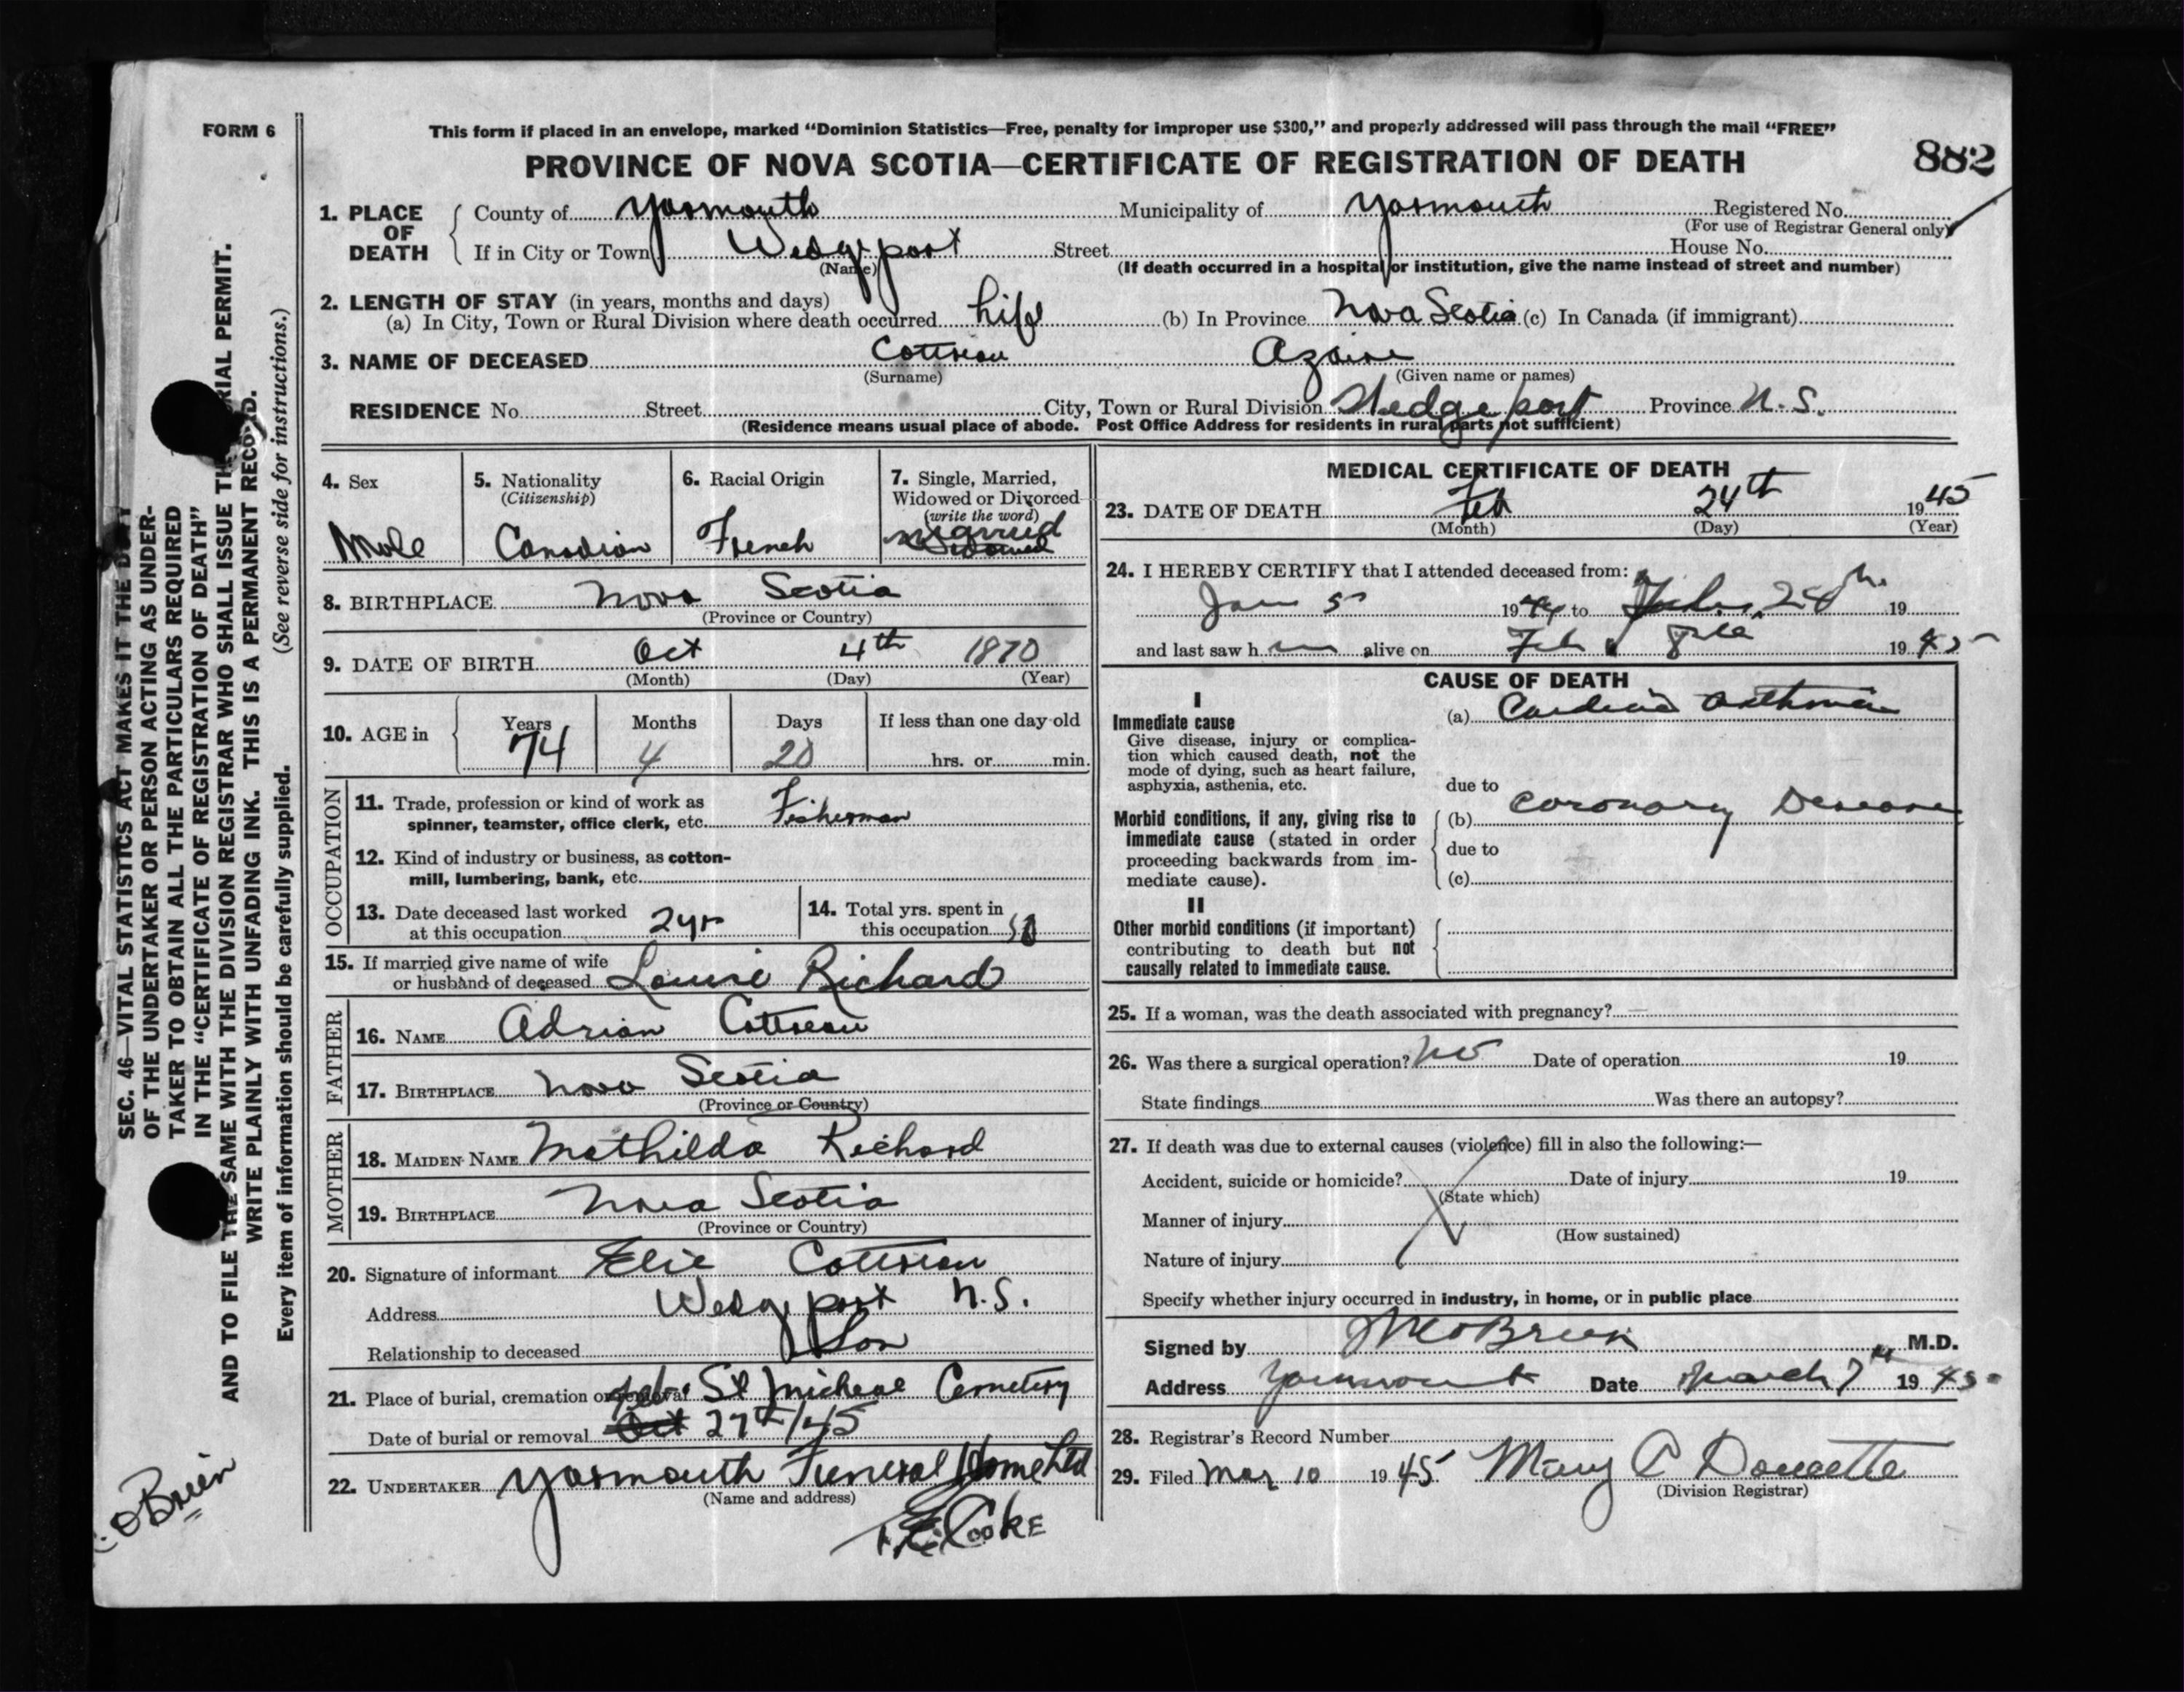 FORM 6
This form if placed in an envelope, marked “Dominion Statistics—Free, penalty for improper use $300,” and properly addressed will pass through the mail “FREE”
PROVINCE OF NOVA SCOTIA—CERTIFICATE OF REGISTRATION OF DEATH
882
1. PLACE OF DEATH
County of Yarmouth Municipality of Yarmouth Registered No.
(For use of Registrar General only)
If in City or Town Wedgeport Street House No.
(Name) (If death occurred in a hospital or institution, give the name instead of street and number)
2. LENGTH OF STAY (in years, months and days)
(a) In City, Town or Rural Division where death occurred Life (b) In Province Nova Scotia (c) In Canada (if immigrant)
3. NAME OF DECEASED Cottreau Azaire
(Surname) (Given name or names)
RESIDENCE No. Street City, Town or Rural Division Wedgeport Province N.S.
(Residence means usual place of abode. Post Office Address for residents in rural parts not sufficient)
4. Sex
Male
5. Nationality
(Citizenship)
Canadian
6. Racial Origin
French
7. Single, Married,
Widowed or Divorced
(write the word)
Married
Widowed
8. BIRTHPLACE Nova Scotia
(Province or Country)
9. DATE OF BIRTH Oct 4th 1870
(Month) (Day) (Year)
10. AGE in
Years Months Days If less than one day old
74 4 20 hrs. or min.
OCCUPATION
11. Trade, profession or kind of work as
spinner, teamster, office clerk, etc. Fisherman
12. Kind of industry or business, as cotton-
mill, lumbering, bank, etc.
13. Date deceased last worked
at this occupation 2 yr
14. Total yrs. spent in
this occupation 50
15. If married give name of wife
or husband of deceased Louise Richard
FATHER
16. NAME Adrian Cottreau
17. BIRTHPLACE Nova Scotia
(Province or Country)
MOTHER
18. MAIDEN NAME Mathilda Richard
19. BIRTHPLACE Nova Scotia
(Province or Country)
20. Signature of informant Elie Cottreau
Address Wedgeport N.S.
Relationship to deceased Son
21. Place of burial, cremation or removal St Micheal Cemetery
Date of burial or removal Oct Feb 27th/45
22. UNDERTAKER Yarmouth Funeral Home Ltd
(Name and address)
Cooke
MEDICAL CERTIFICATE OF DEATH
23. DATE OF DEATH Feb 24th 1945
(Month) (Day) (Year)
24. I HEREBY CERTIFY that I attended deceased from:
Jan 5 1944 to 19
and last saw h im alive on Feb 8th 1945
CAUSE OF DEATH
I
Immediate cause
Give disease, injury or complica-
tion which caused death, not the
mode of dying, such as heart failure,
asphyxia, asthenia, etc.
(a) Cardiac Asthma
due to
Morbid conditions, if any, giving rise to
immediate cause (stated in order
proceeding backwards from im-
mediate cause).
(b) Coronary Disease
due to
(c)
II
Other morbid conditions (if important)
contributing to death but not
causally related to immediate cause.
25. If a woman, was the death associated with pregnancy?
26. Was there a surgical operation? No Date of operation 19
State findings Was there an autopsy?
27. If death was due to external causes (violence) fill in also the following:—
Accident, suicide or homicide? Date of injury 19
(State which)
Manner of injury
(How sustained)
Nature of injury
Specify whether injury occurred in industry, in home, or in public place
Signed by O'Brien M.D.
Address Yarmouth Date March 7th 1945
28. Registrar's Record Number
29. Filed Mar 10 1945 Mary C Doucette
(Division Registrar)
SEC. 46—VITAL STATISTICS ACT MAKES IT THE DUTY
OF THE UNDERTAKER OR PERSON ACTING AS UNDER-
TAKER TO OBTAIN ALL THE PARTICULARS REQUIRED
IN THE “CERTIFICATE OF REGISTRATION OF DEATH”
AND TO FILE THE SAME WITH THE DIVISION REGISTRAR WHO SHALL ISSUE THE BURIAL PERMIT.
WRITE PLAINLY WITH UNFADING INK. THIS IS A PERMANENT RECORD.
Every item of information should be carefully supplied. (See reverse side for instructions.)
O'Brien